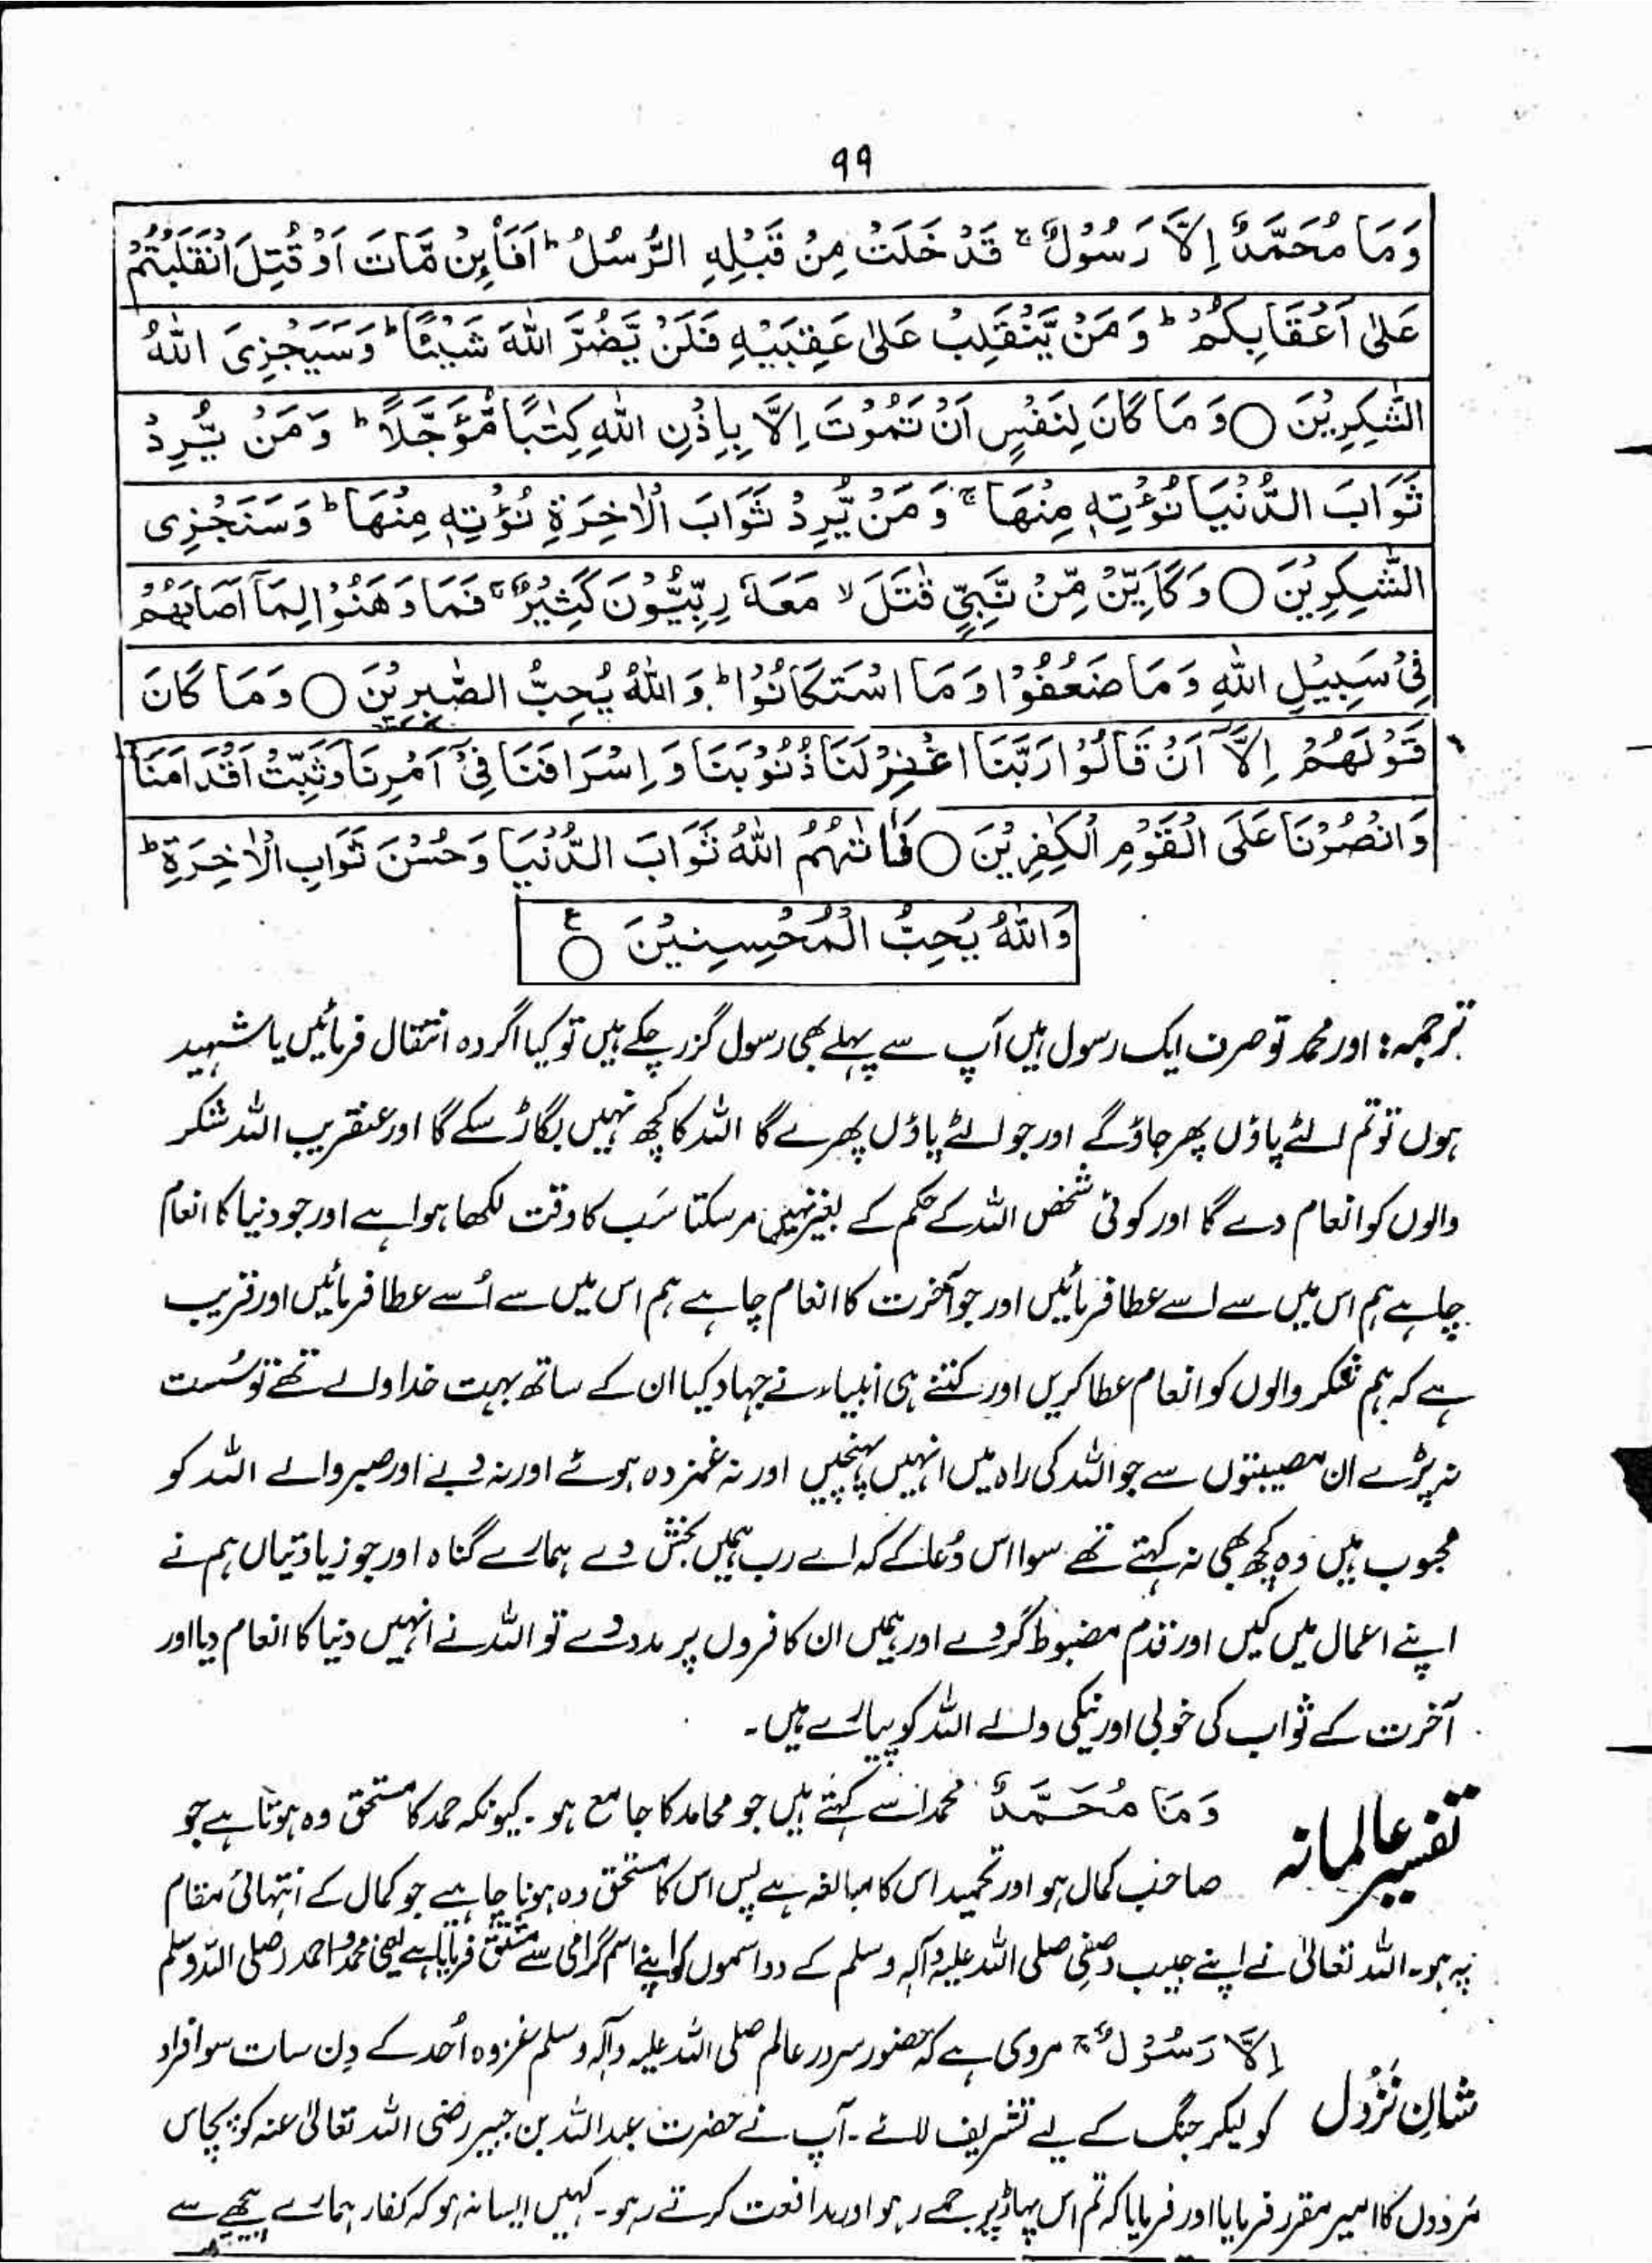 ۹۹
وَمَا مُحَمَّدٌ اِلَّا رَسُوْلٌ ۚ قَدْ خَلَتْ مِنْ قَبْلِهِ الرُّسُلُ ؕ اَفَا۟ئِنْ مَّاتَ اَوْ قُتِلَ انْقَلَبْتُمْ
عَلٰۤی اَعْقَابِكُمْ ؕ وَ مَنْ یَّنْقَلِبْ عَلٰی عَقِبَیْهِ فَلَنْ یَّضُرَّ اللّٰهَ شَیْـًٔا ؕ وَ سَیَجْزِی اللّٰهُ
الشّٰكِرِیْنَ ○ وَ مَا كَانَ لِنَفْسٍ اَنْ تَمُوْتَ اِلَّا بِاِذْنِ اللّٰهِ كِتٰبًا مُّؤَجَّلًا ؕ وَ مَنْ یُّرِدْ
ثَوَابَ الدُّنْیَا نُؤْتِهٖ مِنْهَا ۚ وَ مَنْ یُّرِدْ ثَوَابَ الْاٰخِرَةِ نُؤْتِهٖ مِنْهَا ؕ وَ سَنَجْزِی
الشّٰكِرِیْنَ ○ وَ كَاَیِّنْ مِّنْ نَّبِیٍّ قٰتَلَ ۙ مَعَهٗ رِبِّیُّوْنَ كَثِیْرٌ ۚ فَمَا وَهَنُوْا لِمَاۤ اَصَابَهُمْ
فِیْ سَبِیْلِ اللّٰهِ وَ مَا ضَعُفُوْا وَ مَا اسْتَكَانُوْا ؕ وَ اللّٰهُ یُحِبُّ الصّٰبِرِیْنَ ○ وَ مَا كَانَ
قَوْلَهُمْ اِلَّاۤ اَنْ قَالُوْا رَبَّنَا اغْفِرْ لَنَا ذُنُوْبَنَا وَ اِسْرَافَنَا فِیْۤ اَمْرِنَا وَ ثَبِّتْ اَقْدَامَنَا
وَ انْصُرْنَا عَلَی الْقَوْمِ الْكٰفِرِیْنَ ○ فَاٰتٰىهُمُ اللّٰهُ ثَوَابَ الدُّنْیَا وَ حُسْنَ ثَوَابِ الْاٰخِرَةِ ؕ
وَ اللّٰهُ یُحِبُّ الْمُحْسِنِیْنَ ○ ع
ترجمہ: اور محمد تو صرف ایک رسول ہیں آپ سے پہلے بھی رسول گزر چکے ہیں تو کیا اگر وہ انتقال فرمائیں یا شہید
ہوں تو تم الٹے پاؤں پھر جاؤگے اور جو الٹے پاؤں پھرے گا اللہ کا کچھ نہیں بگاڑ سکے گا اور عنقریب اللہ شکر
والوں کو انعام دے گا اور کوئی شخص اللہ کے حکم کے بغیر نہیں مر سکتا سَب کا وقت لکھا ہوا ہے اور جو دنیا کا انعام
چاہے ہم اس میں سے اسے عطا فرمائیں اور جو آخرت کا انعام چاہے ہم اس میں سے اُسے عطا فرمائیں اور قریب
ہے کہ ہم شکر والوں کو انعام عطا کریں اور کتنے ہی انبیاء نے جہاد کیا ان کے ساتھ بہت خدا والے تھے تو سُست
نہ پڑے ان مصیبتوں سے جو اللہ کی راہ میں انہیں پہنچیں اور نہ غمزدہ ہوئے اور نہ دبے اور صبر والے اللہ کو
محبوب ہیں وہ کچھ بھی نہ کہتے تھے سوا اس دُعا کے کہ اے رب ہمیں بخش دے ہمارے گناہ اور جو زیادتیاں ہم نے
اپنے اعمال میں کیں اور قدم مضبوط کردے اور ہمیں ان کافروں پر مدد دے تو اللہ نے انہیں دنیا کا انعام دیا اور
آخرت کے ثواب کی خوبی اور نیکی والے اللہ کو پیارے ہیں۔
تفسیر عالمانہ وَ مَا مُحَمَّدٌ محمد اسے کہتے ہیں جو محامد کا جامع ہو۔ کیونکہ حمد کا مستحق وہ ہوتا ہے جو
صاحب کمال ہو اور تحمید اس کا مبالغہ ہے پس اس کا مستحق وہ ہونا چاہیے جو کمال کے انتہائی مقام
پہ ہو۔ اللہ تعالیٰ نے اپنے حبیب وصفی صلی اللہ علیہ وآلہ وسلم کے دو اسموں کو اپنے اسم گرامی سے مشتق فرمایا ہے یعنی محمد و احمد (صلی اللہ وسلم
شانِ نزول اِلَّا رَسُوْلٌ ۚ مروی ہے کہ حضور سرور عالم صلی اللہ علیہ وآلہ وسلم غزوہ اُحد کے دِن سات سو افراد
کو لیکر جنگ کے لیے تشریف لائے۔ آپ نے حضرت عبداللہ بن جبیر رضی اللہ تعالیٰ عنہ کو پچاس
مَردوں کا امیر مقرر فرمایا اور فرمایا کہ تم اس پہاڑ پر جمے رہو اور مدافعت کرتے رہو۔ کہیں ایسا نہ ہو کہ کفار ہمارے پیچھے سے